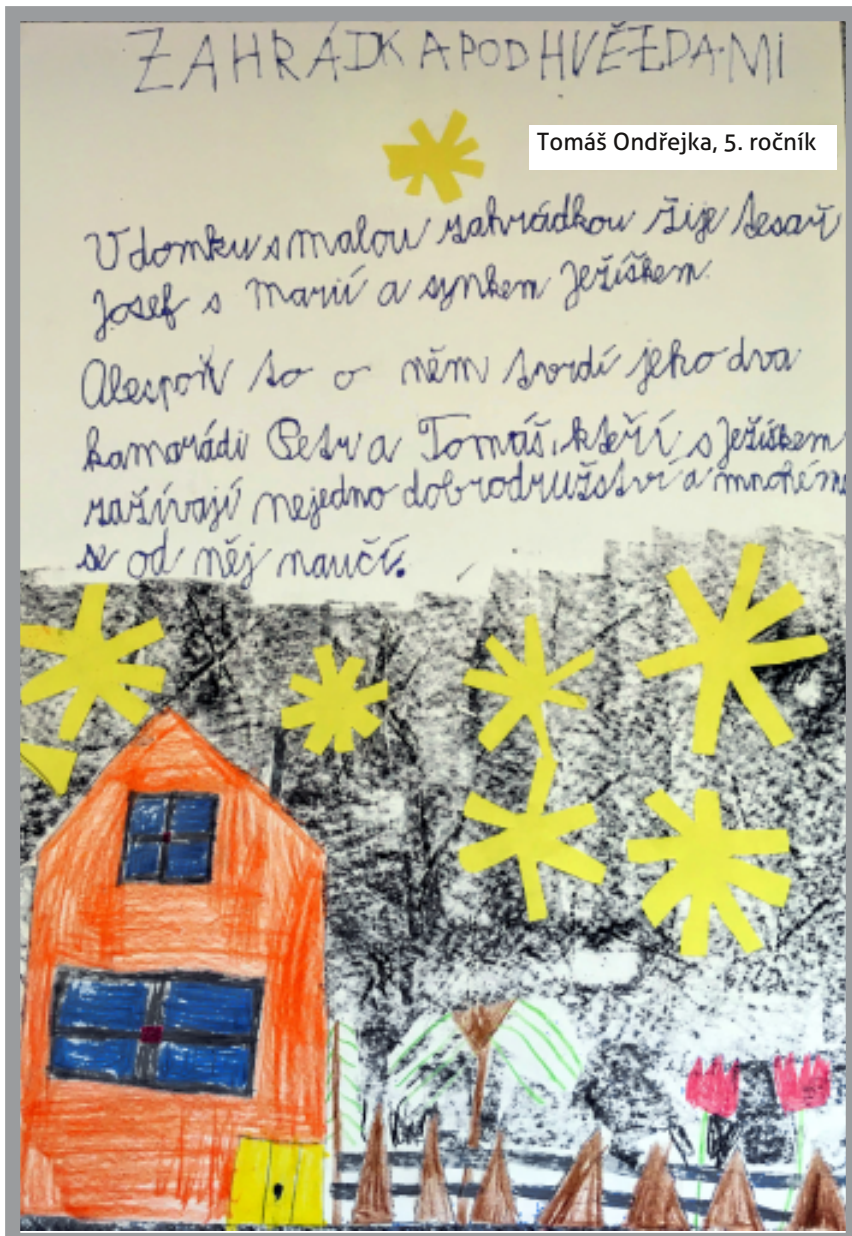 ZAHRÁDKA POD HVĚZDAMI
Tomáš Ondřejka, 5. ročník
V domku s malou zahrádkou žije tesař
Josef s Marií a synkem Ježíškem.
Alespoň to o něm tvrdí jeho dva
kamarádi Petr a Tomáš, kteří s Ježíškem
zažívají nejedno dobrodružství a mnohému
se od něj naučí.